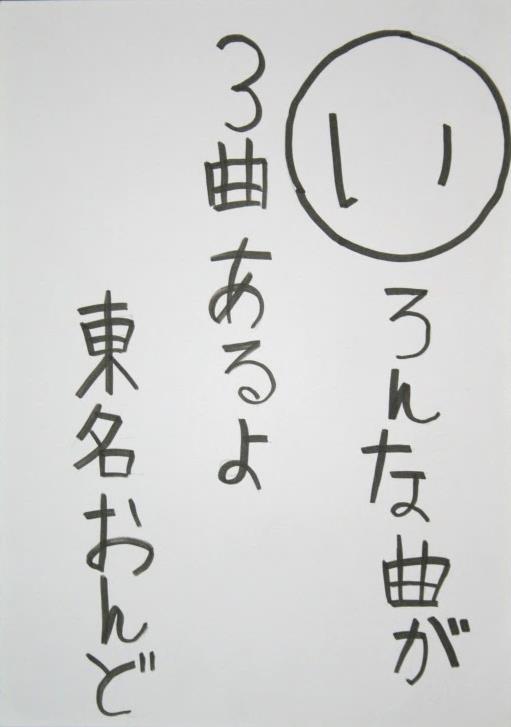 いろんな曲が
3曲あるよ
東名おんど